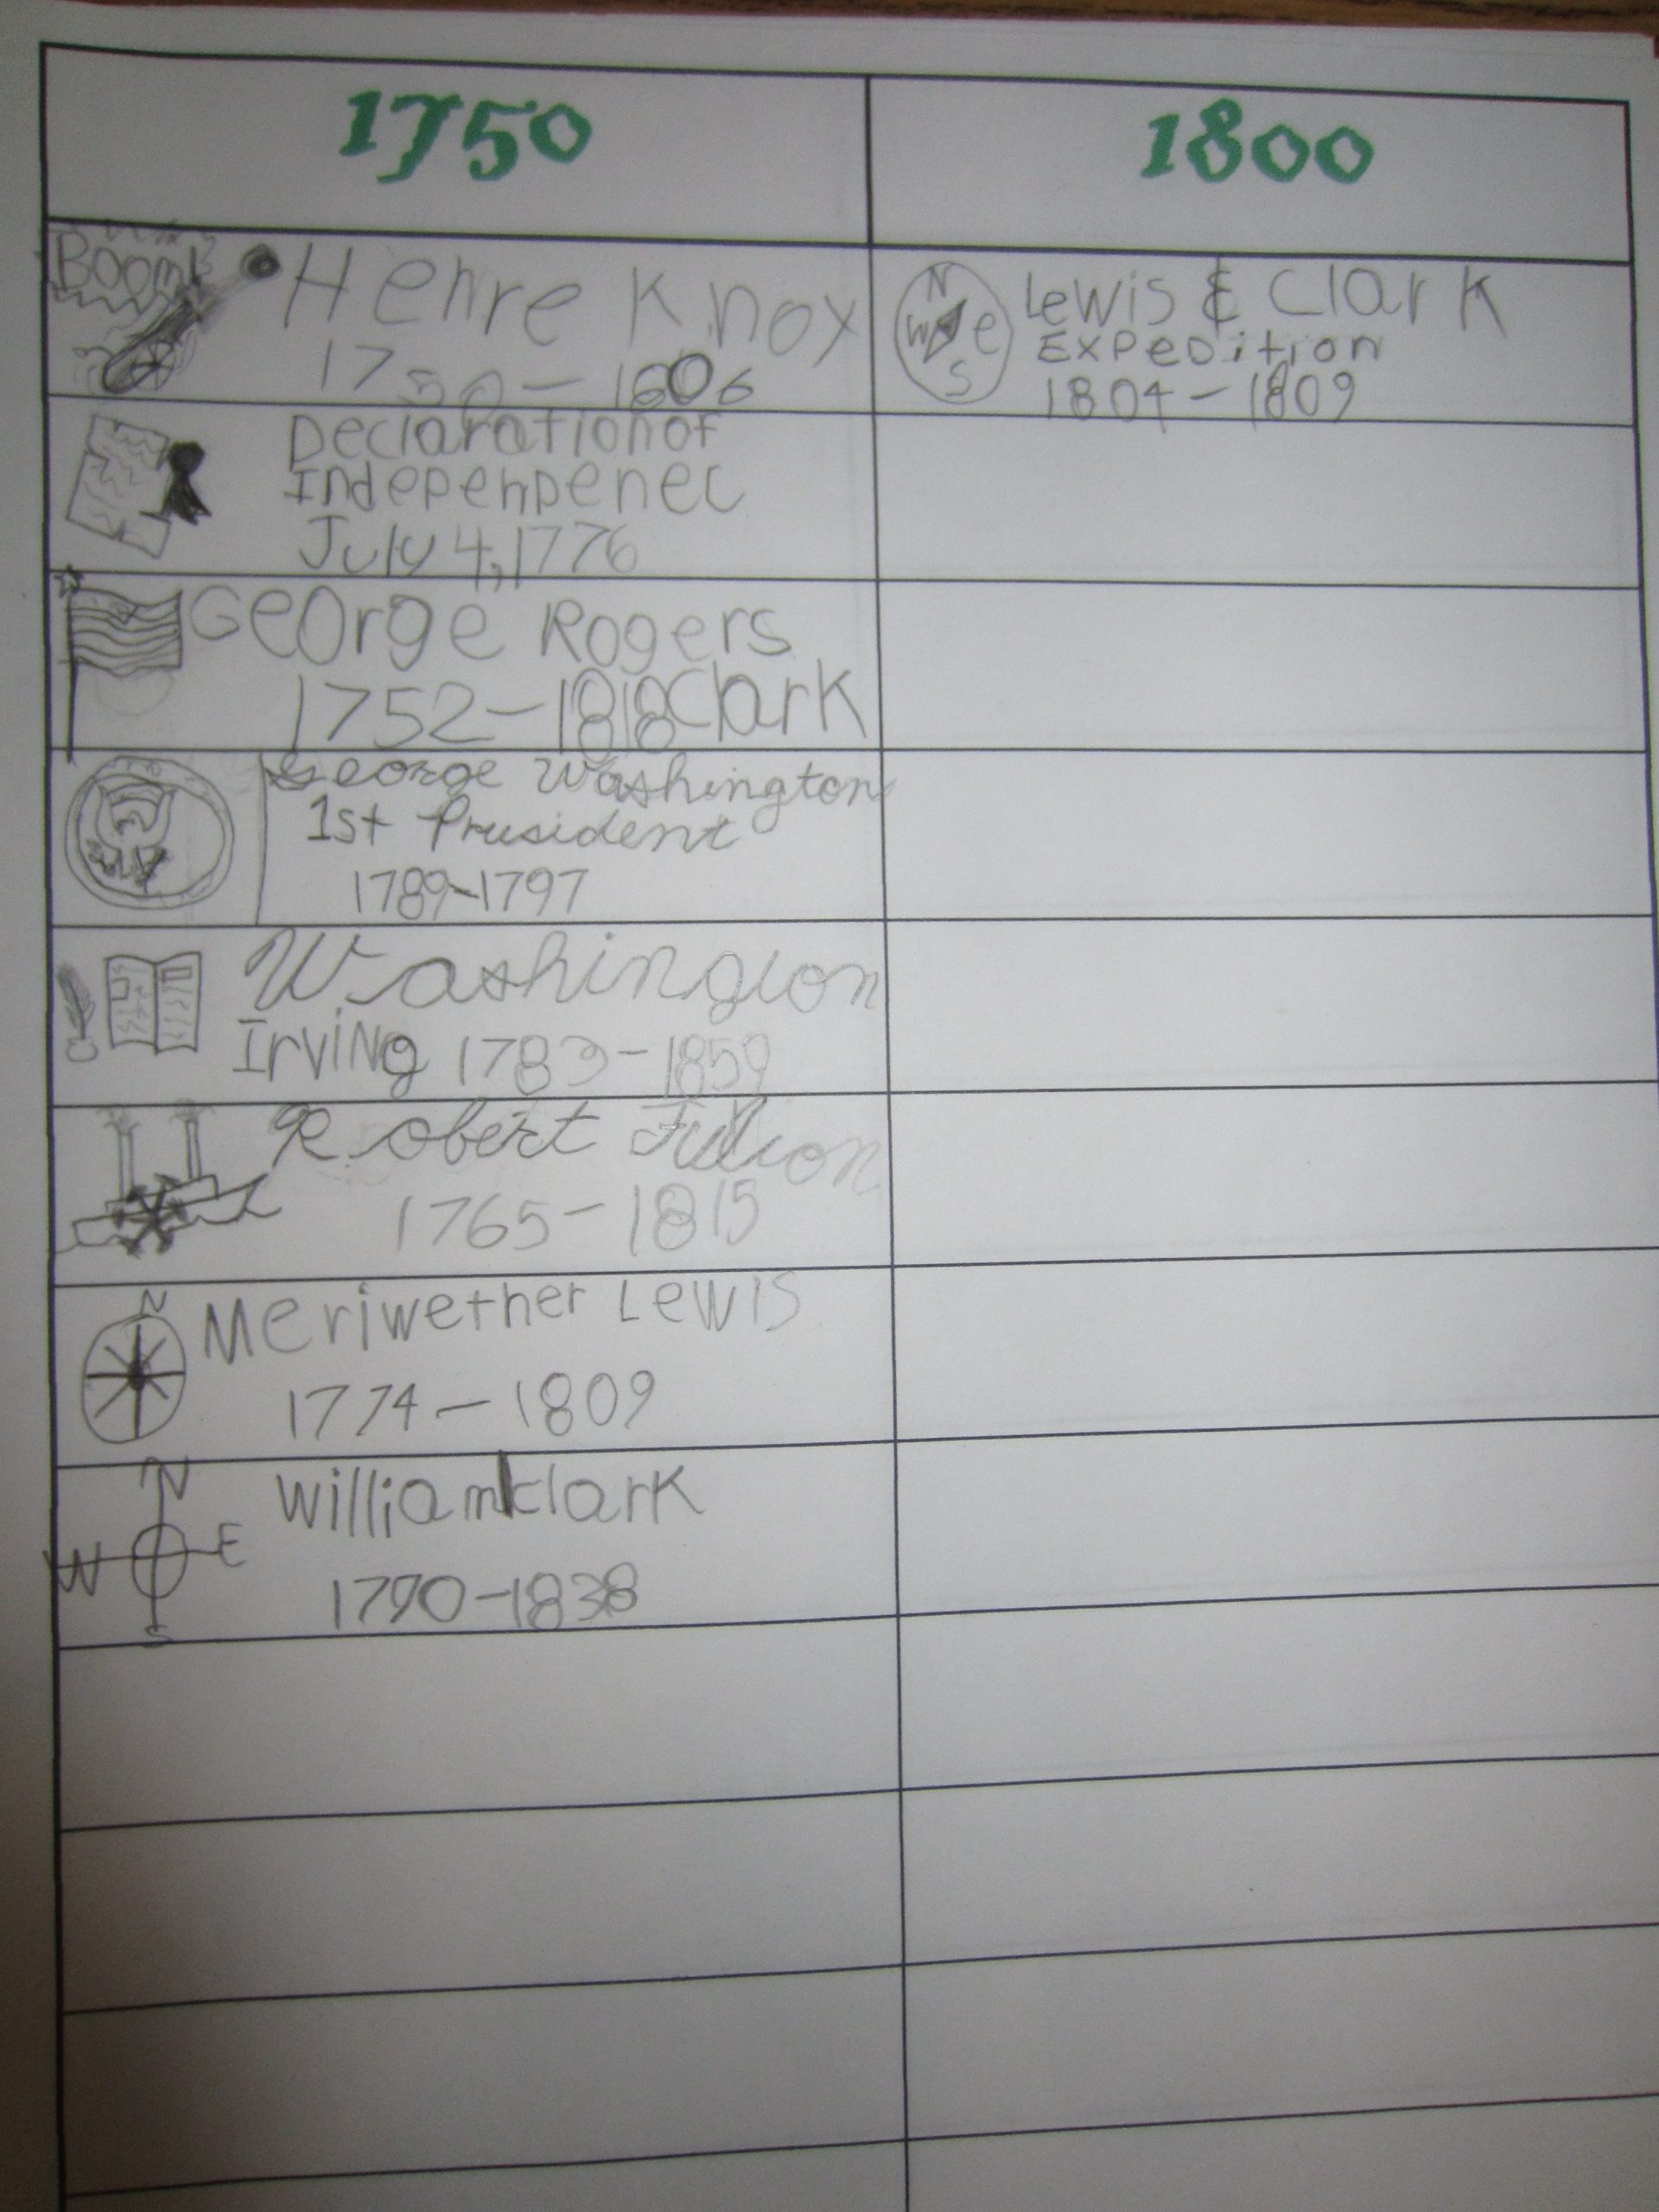 1750
1800
Boom!
Henre Knox
1750-1806
Declaration of
Indepenpenec
July 4, 1776
George Rogers
1752-1818 Clark
George Washington
1st President
1789-1797
Washington
Irving 1783-1859
Robert Fulton
1765-1815
N
Meriwether Lewis
1774-1809
N
W E
S
William Clark
1790-1838
N
W e
S
Lewis & Clark
Expedition
1804-1809